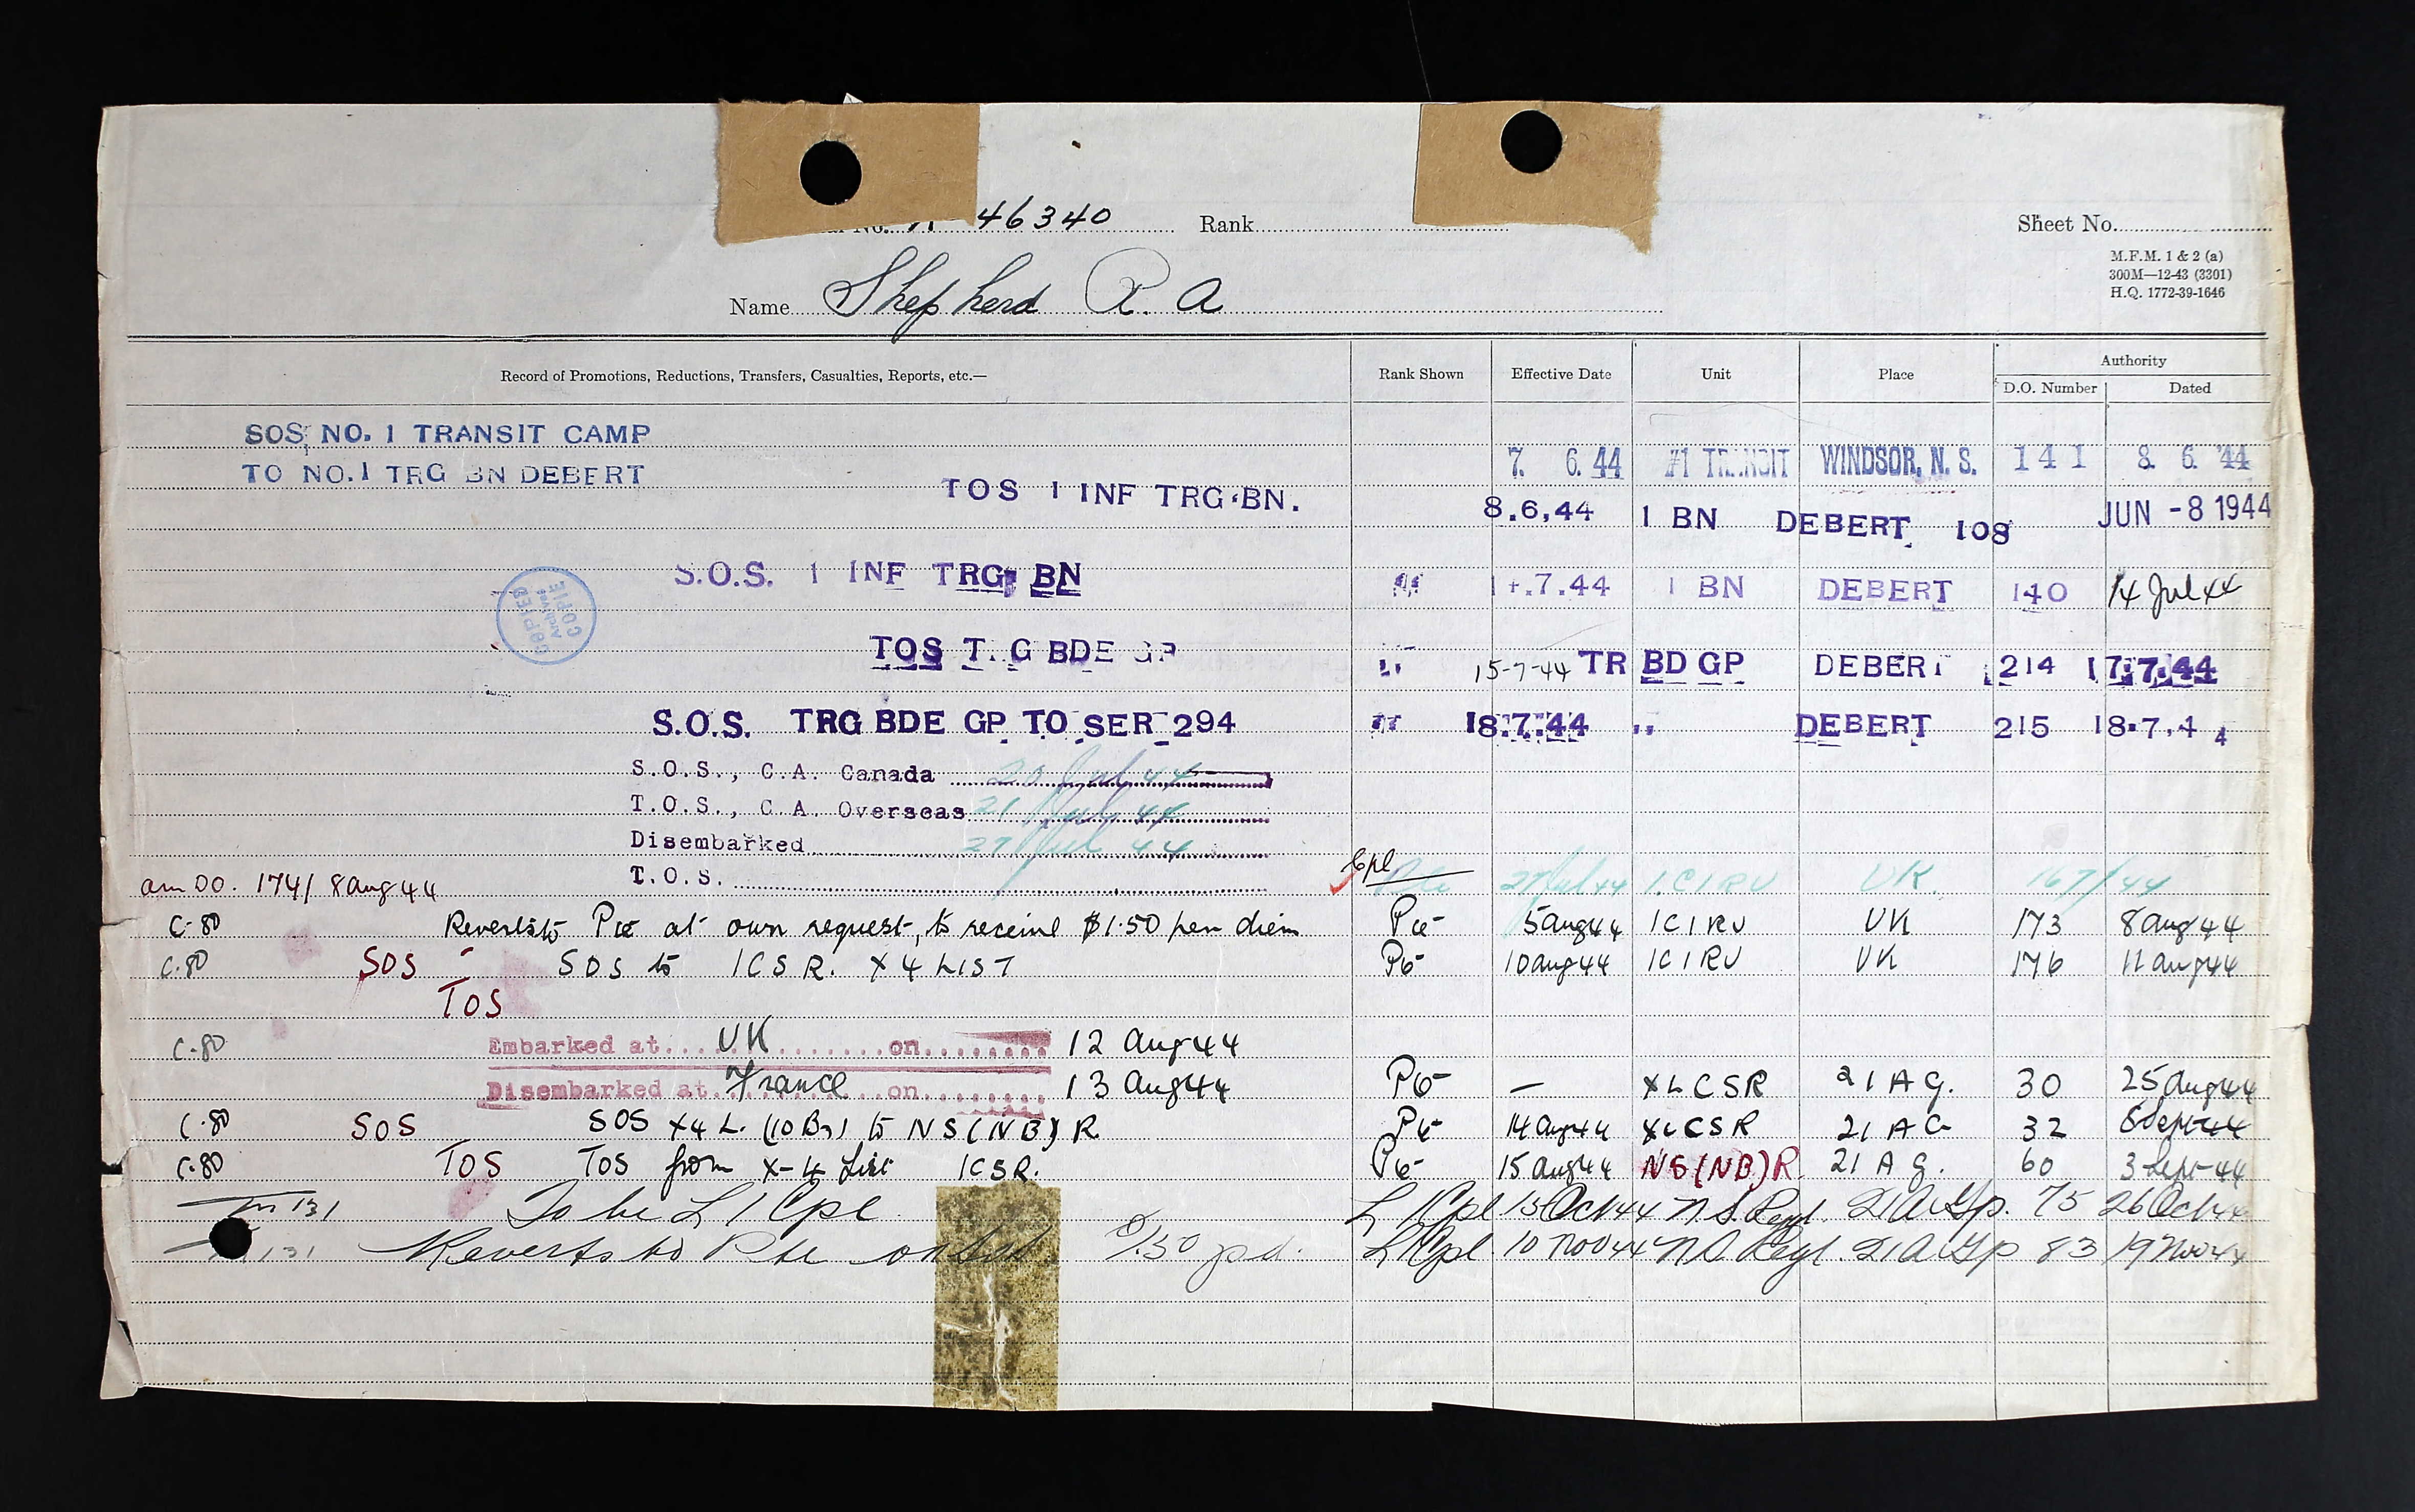 No. 46340 Rank Sheet No.
M.F.M. 1 & 2 (a)
300M—12-43 (3301)
H.Q. 1772-39-1646
Name Shepherd R. A
Record of Promotions, Reductions, Transfers, Casualties, Reports, etc.— Rank Shown Effective Date Unit Place Authority
D.O. Number Dated
SOS NO. 1 TRANSIT CAMP
TO NO. 1 TRG BN DEBERT 7. 6. 44 #1 TRANSIT WINDSOR, N. S. 141 8. 6. '44
TOS 1 INF TRG. BN. 8.6,44 1 BN DEBERT 108 JUN -8 1944
S.O.S. 1 INF TRG BN 14.7.44 1 BN DEBERT 140 14 Jul 44
COPIED
Archives
COPIE
TOS T. G BDE GP 15-7-44 TR BD GP DEBERT 214 17.7.44
S.O.S. TRG BDE GP TO SER 294 18.7.44 " DEBERT 215 18.7.44
S.O.S., C.A. Canada 20 Jul 44
T.O.S., C.A. Overseas 21 July 44
Disembarked 27 Jul 44
am DO. 174/ 8 Aug 44 T.O.S. Cpl Pte 27 Jul 44 1.C1RU UK. 167/44
C-80 Reverts to Pte at own request, to receive $1.50 per diem Pte 5 Aug 44 1C1RU UK 173 8 Aug 44
C.80 SOS - SOS to 1CSR. X4 LIST Pte 10 Aug 44 1C1RU UK 176 11 Aug 44
TOS
C-80 Embarked at UK on 12 Aug 44
Disembarked at France on 13 Aug 44 Pte — X4 CSR 21 A G. 30 25 Aug 44
C-80 SOS SOS X4 L. (10 Bn) to NS (NB) R Pte 14 Aug 44 X4 CSR 21 A G 32 Sept 44
C-80 TOS TOS from X-4 List 1CSR. Pte 15 Aug 44 NS (NB) R. 21 A G. 60 3 Sept 44
131 To be L/Cpl L/Cpl 15 Oct 44 N.S. Regt. 21 A Gp. 75 26 Oct 44
131 Reverts to Pte 1.50 pd. L/Cpl 10 Nov 44 N.S. Regt. 21 A Gp 83 19 Nov 44